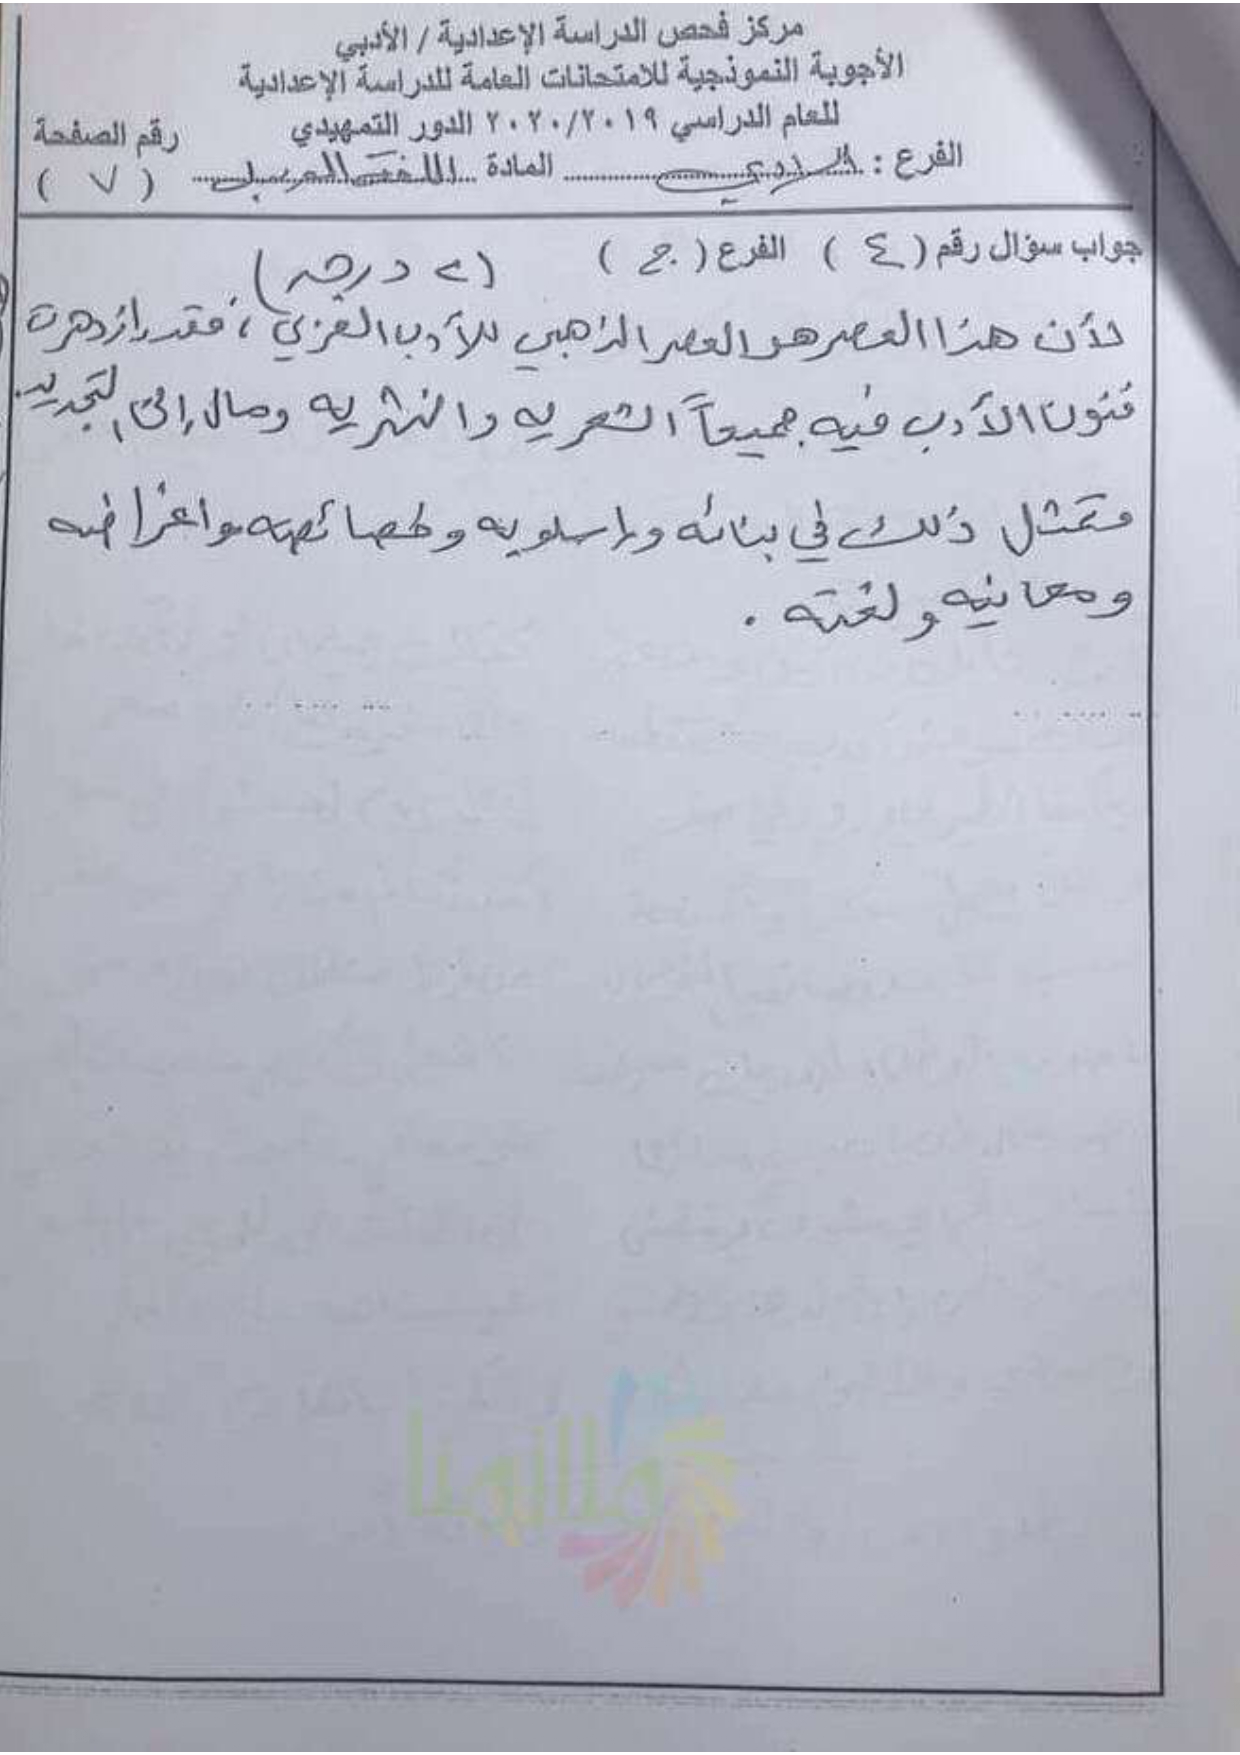 مركز فحص الدراسة الإعدادية / الأدبي
الأجوبة النموذجية للامتحانات العامة للدراسة الإعدادية
للعام الدراسي ٢٠٢٠/٢٠١٩ الدور التمهيدي
رقم الصفحة
الفرع : الادبي المادة اللغة العربية ( ٧ )
جواب سؤال رقم ( ٤ ) الفرع ( ج ) ( ٢ درجة )
لأن هذا العصر هو العصر الذهبي للأدب العربي ، فقد ازدهرت
فنون الأدب فيه جميعاً الشعرية والنثرية ومال إلى التجديد
فتمثل ذلك في بنائه واسلوبه وخصائصه واغراضه
ومعانيه ولغته .
ملازمنا